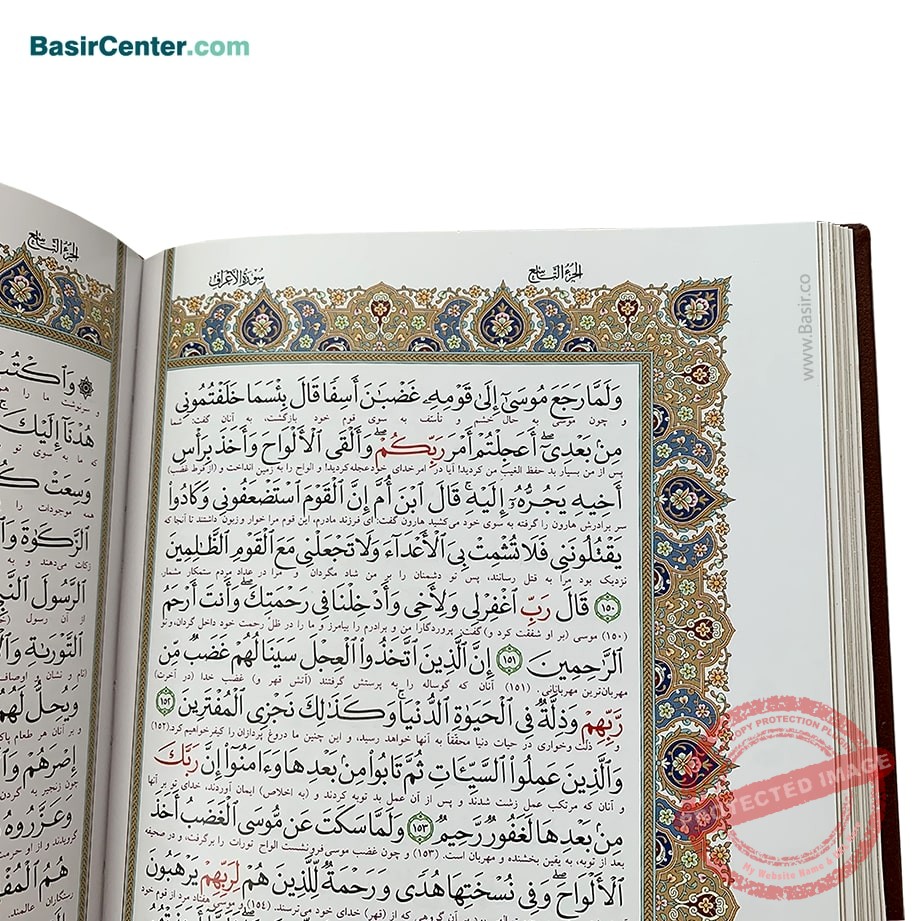 BasirCenter.com
سورة الأعراف
الجزء التاسع
وَلَمَّا رَجَعَ مُوسَىٰٓ إِلَىٰ قَوْمِهِۦ غَضْبَٰنَ أَسِفًا قَالَ بِئْسَمَا خَلَفْتُمُونِى
و چون موسی به حال خشم و تأسف به سوی قوم خود بازگشت، به آنان گفت: شما
مِنۢ بَعْدِىٓ ۖ أَعَجِلْتُمْ أَمْرَ رَبِّكُمْ ۖ وَأَلْقَى ٱلْأَلْوَاحَ وَأَخَذَ بِرَأْسِ
پس از من بسیار بد حفظ الغیب من کردید! آیا در امر خدای خود عجله کردید! و الواح را به زمین انداخت و (از فرط غضب)
أَخِيهِ يَجُرُّهُۥٓ إِلَيْهِ ۚ قَالَ ٱبْنَ أُمَّ إِنَّ ٱلْقَوْمَ ٱسْتَضْعَفُونِى وَكَادُوا۟
سر برادرش هارون را گرفته به سوی خود می‌کشید هارون گفت: ای فرزند مادرم، این قوم مرا خوار و زبون داشتند تا آنجا که
يَقْتُلُونَنِى فَلَا تُشْمِتْ بِىَ ٱلْأَعْدَآءَ وَلَا تَجْعَلْنِى مَعَ ٱلْقَوْمِ ٱلظَّٰلِمِينَ
نزدیک بود مرا به قتل رسانند، پس تو دشمنان را بر من شاد مگردان و مرا در عداد مردم ستمکار مشمار
١٥٠ قَالَ رَبِّ ٱغْفِرْ لِى وَلِأَخِى وَأَدْخِلْنَا فِى رَحْمَتِكَ ۖ وَأَنتَ أَرْحَمُ
(۱۵۰) موسی (بر او شفقت کرد و) گفت: پروردگارا من و برادرم را بیامرز و ما را در ظل رحمت خود داخل گردان، و تو
ٱلرَّٰحِمِينَ ١٥١ إِنَّ ٱلَّذِينَ ٱتَّخَذُوا۟ ٱلْعِجْلَ سَيَنَالُهُمْ غَضَبٌ مِّن
مهربان‌ترین مهربانانی. (۱۵۱) آنان که گوساله را به پرستش گرفتند (آتش قهر و) غضب خدا (در آخرت)
رَّبِّهِمْ وَذِلَّةٌ فِى ٱلْحَيَوٰةِ ٱلدُّنْيَا ۚ وَكَذَٰلِكَ نَجْزِى ٱلْمُفْتَرِينَ ١٥٢
و ذلت و خواری در حیات دنیا محققاً به آنها خواهد رسید، و این چنین ما دروغ پردازان را کیفر خواهیم کرد. (۱۵۲)
وَٱلَّذِينَ عَمِلُوا۟ ٱلسَّيِّـَٔاتِ ثُمَّ تَابُوا۟ مِنۢ بَعْدِهَا وَءَامَنُوٓا۟ إِنَّ رَبَّكَ
و آنان که مرتکب عمل زشت شدند و پس از آن عمل بد توبه کردند و (به اخلاص) ایمان آوردند، خدای تو بر آنها
مِنۢ بَعْدِهَا لَغَفُورٌ رَّحِيمٌ ١٥٣ وَلَمَّا سَكَتَ عَن مُّوسَى ٱلْغَضَبُ أَخَذَ
بعد از توبه، به یقین بخشنده و مهربان است. (۱۵۳) و چون غضب موسی فرو نشست الواح تورات را برگرفت، و در صحیفه
ٱلْأَلْوَاحَ ۖ وَفِى نُسْخَتِهَا هُدًى وَرَحْمَةٌ لِّلَّذِينَ هُمْ لِرَبِّهِمْ يَرْهَبُونَ
الجزء التاسع
هُدْنَآ إِلَيْكَ
وَسِعَتْ
ٱلزَّكَوٰةَ
ٱلرَّسُولَ
ٱلتَّوْرَىٰةِ
وَيُحِلُّ لَهُمُ
إِصْرَهُمْ
وَعَزَّرُوهُ
www.Basir.co
COPY PROTECTION PLUGIN
PROTECTED IMAGE
My Website Name &